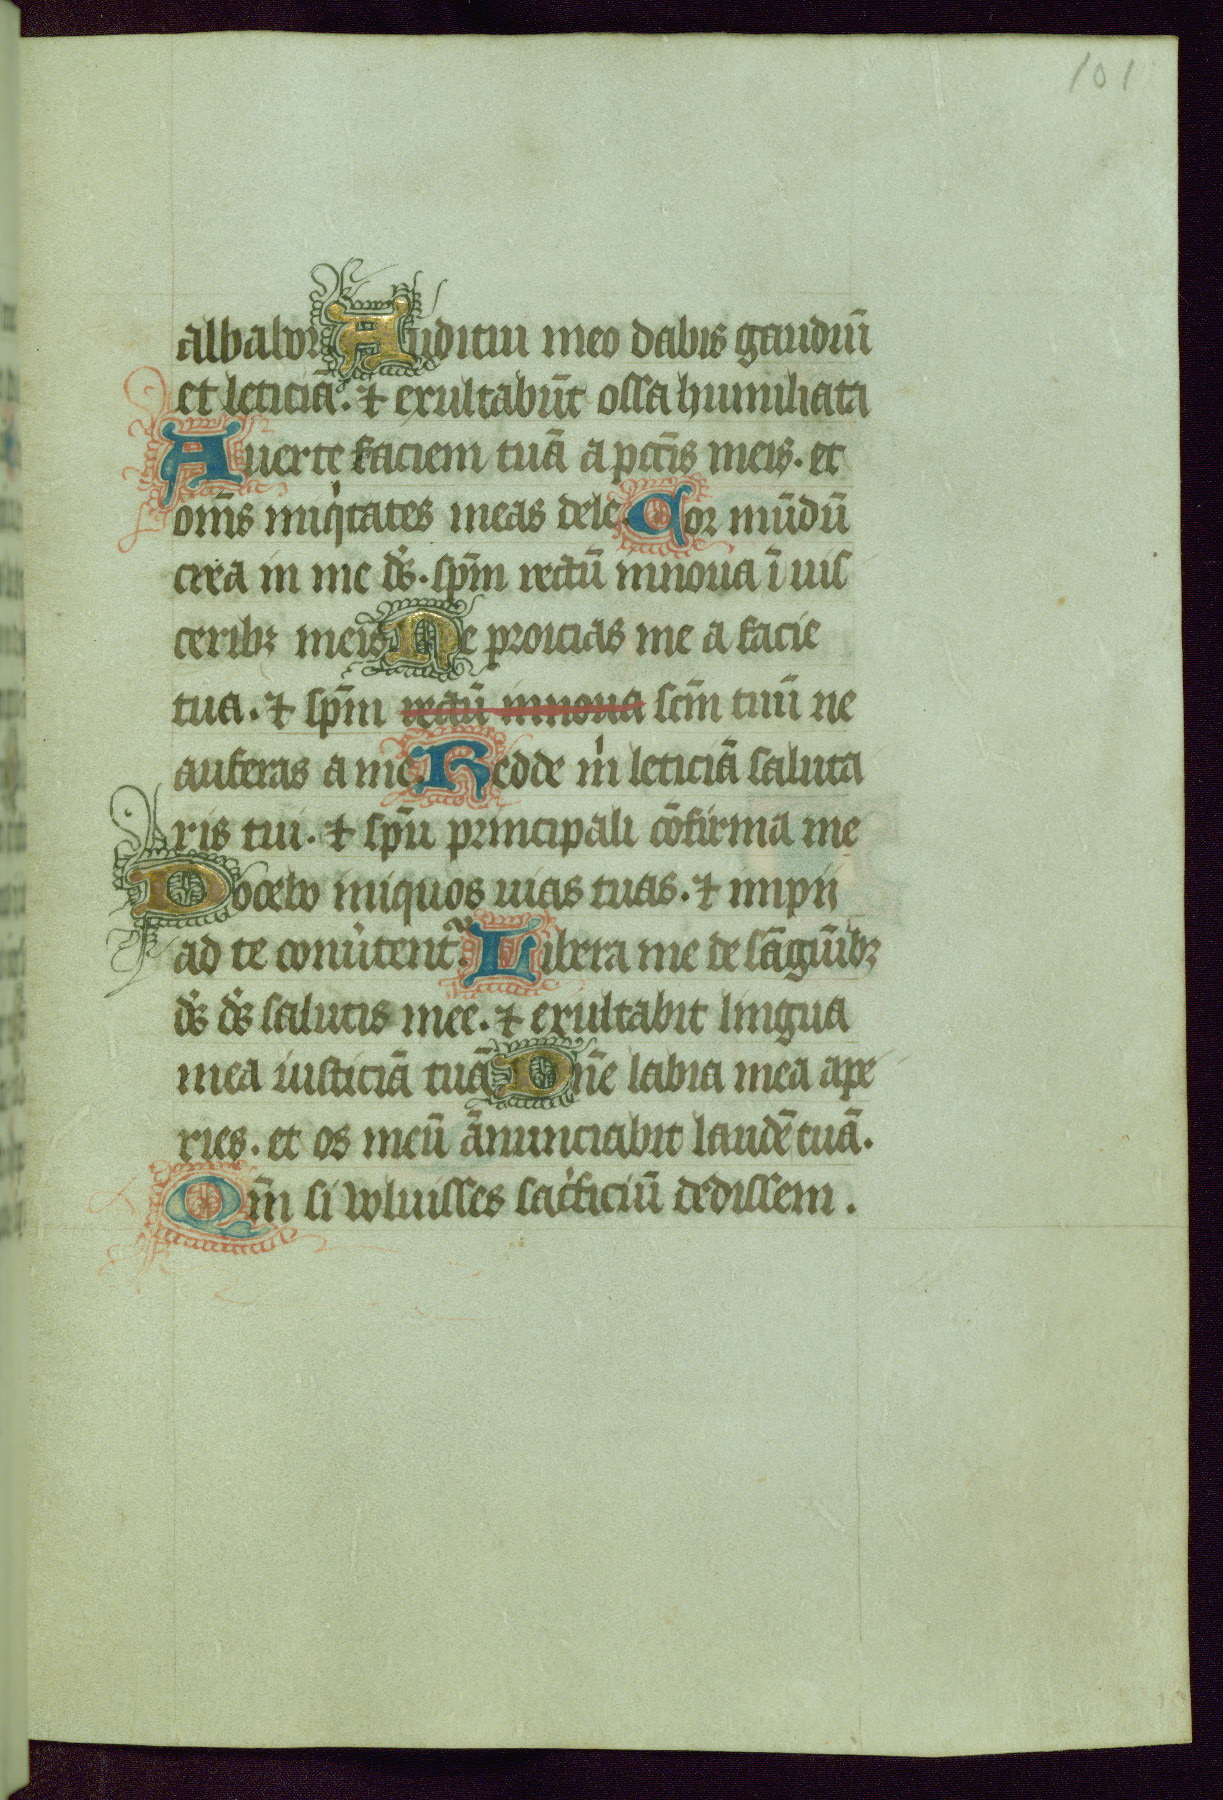 101
albabor Auditui meo dabis gaudiū
et leticiā. ⁊ exultabūt ossa humiliata
Auerte faciem tuā a pctīs meis. et
om̄s iniqͥtates meas dele. Cor mūdū
crea in me dꝰs. spm̄ rectū innoua ī uis
ceribꝫ meis Ne proicias me a facie
tua. ⁊ spm̄ rectū innoua scm̄ tuū ne
auferas a me. Redde mͥ leticiā saluta
ris tui. ⁊ spū principali cōfirma me
Docebo iniquos uias tuas. ⁊ impij
ad te conu̾tentᷣ. Libera me de sāguībꝫ
dꝰs dꝰs salutis mee. ⁊ exultabit lingua
mea iusticiā tuā Dn̄e labia mea ape
ries. et os meū ānunciabit laudē tuā.
Qm̄ si voluisses sacͥficiū dedissem.